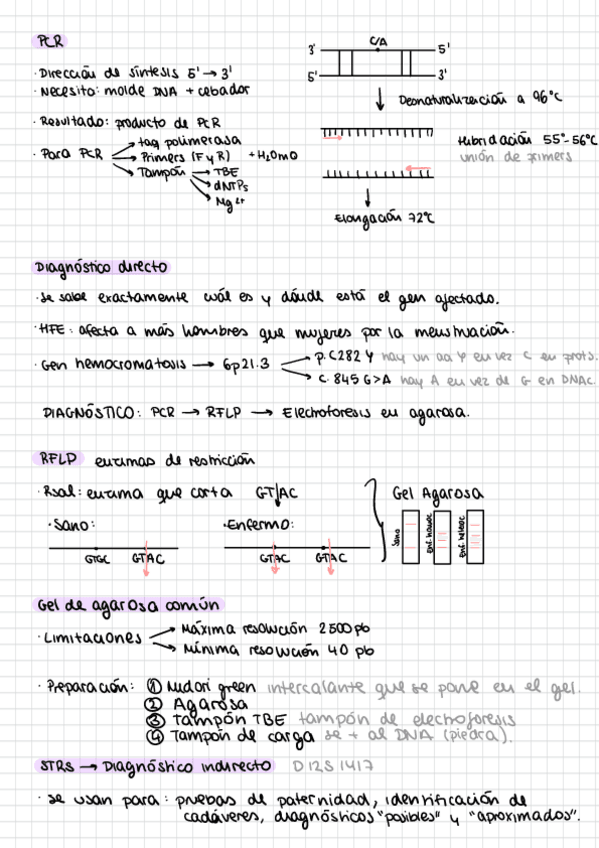 PCR
· Dirección de síntesis 5' → 3'
· Necesito: molde DNA + cebador
· Resultado: producto de PCR
· Para PCR → taq polimerasa
→ Primers (F y R) + H₂O mQ
→ Tampón → TBE
→ dNTPs
→ Mg²⁺
C/A
3' 5'
5' 3'
Desnaturalización a 96°C
Hibridación 55°-56°C
unión de primers
Elongación 72°C
Diagnóstico directo
· Se sabe exactamente cuál es y dónde está el gen afectado.
· HFE: afecta a más hombres que mujeres por la menstruación.
· Gen hemocromatosis → 6p21.3 → p.C282Y hay un aa Y en vez C en prots.
→ c.845G>A hay A en vez de G en DNAc.
DIAGNÓSTICO: PCR → RFLP → Electroforesis en agarosa.
RFLP enzimas de restricción
· RsaI: enzima que corta GT↓AC
· Sano:
GTGC GTAC
· Enfermo:
GTAC GTAC
Gel Agarosa
Sano
Enf. homoc
Enf. heteroc
Gel de agarosa común
· Limitaciones → Máxima resolución 2500 pb
→ Mínima resolución 40 pb
· Preparación: ① Midori green intercalante que se pone en el gel.
② Agarosa
③ Tampón TBE tampón de electroforesis
④ Tampón de carga se + al DNA (piedra).
STRs → Diagnóstico indirecto D12S1417
· Se usan para: pruebas de paternidad, identificación de
cadáveres, diagnósticos "posibles" y "aproximados".